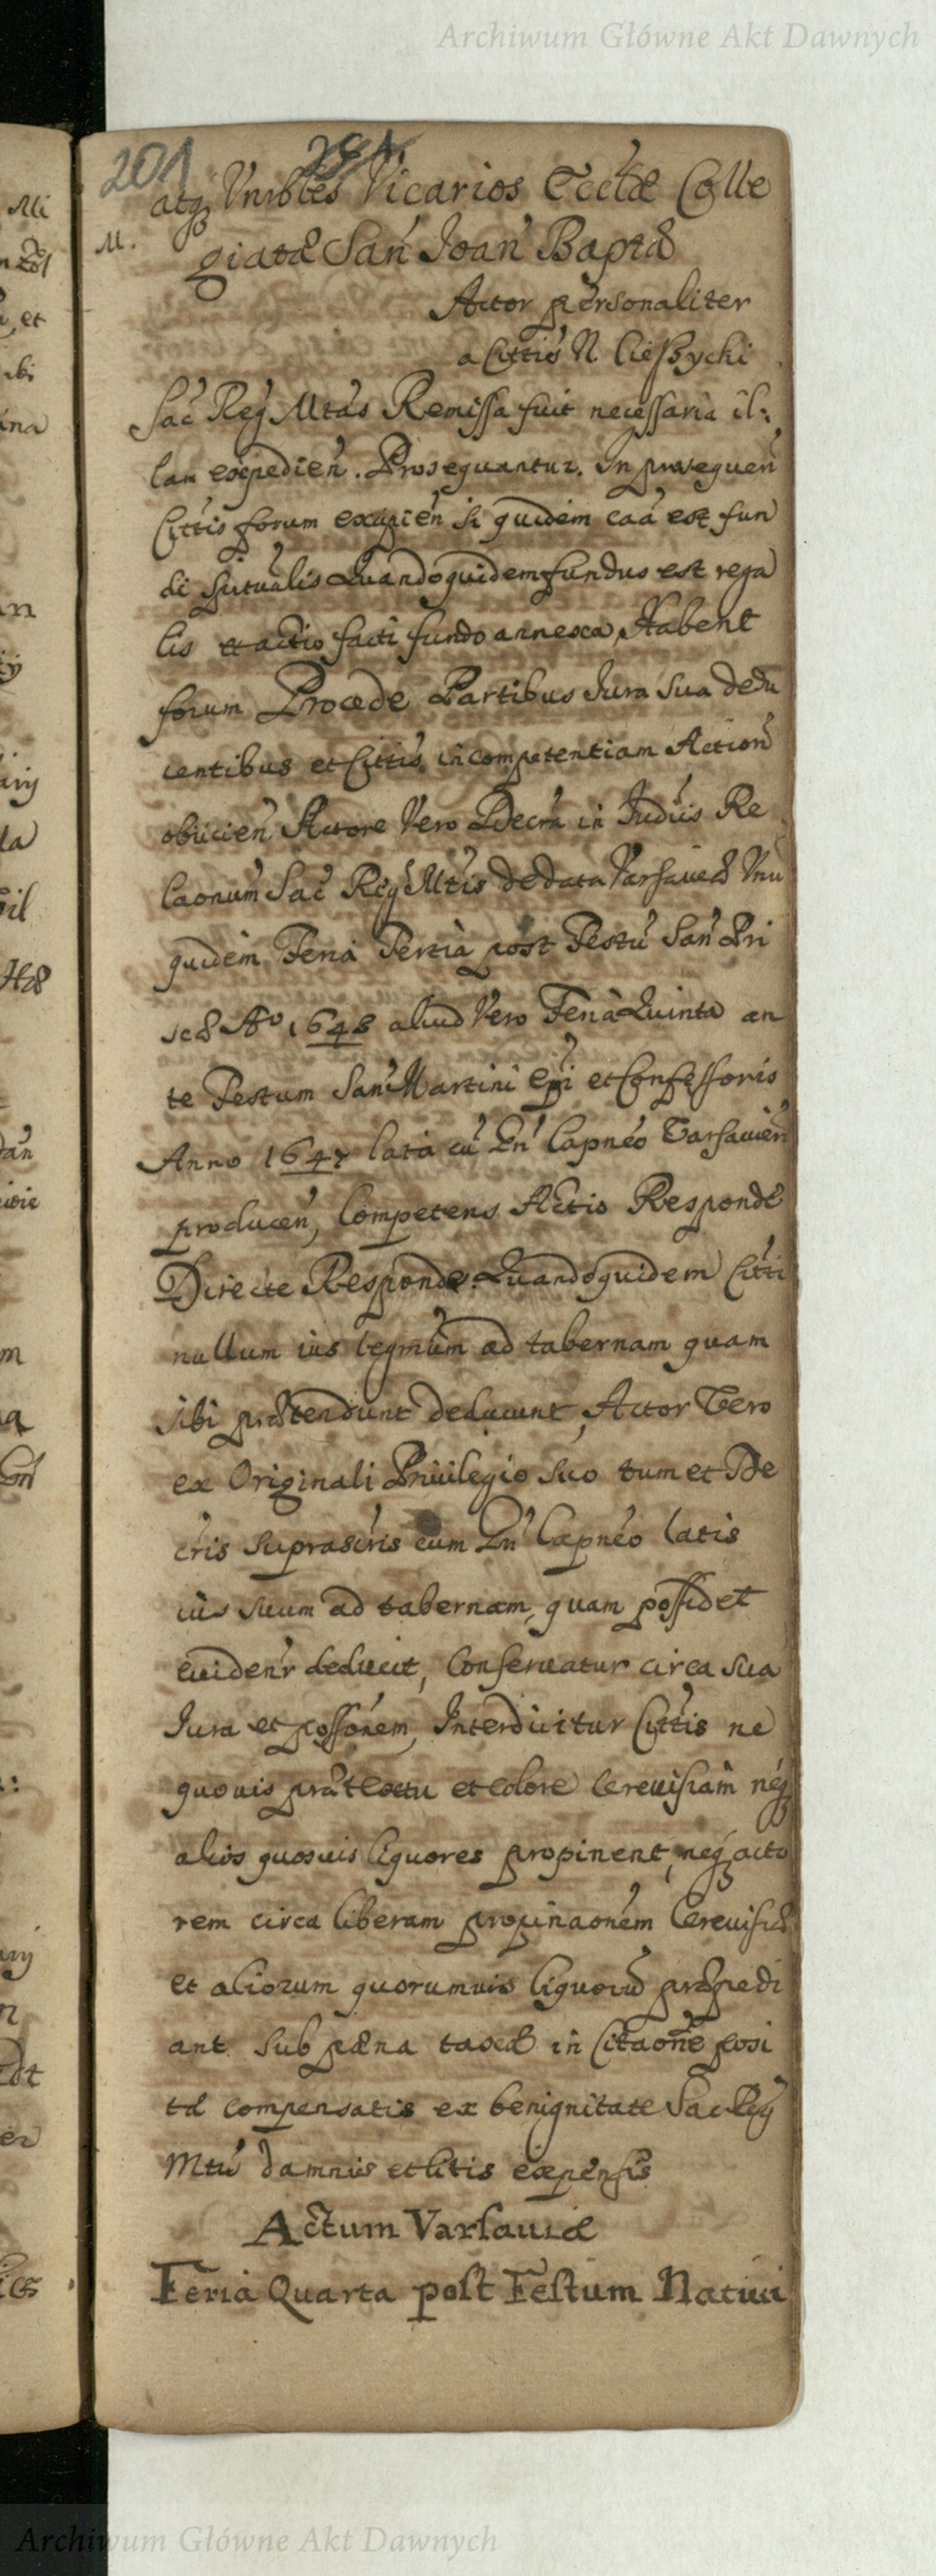 Archiwum Główne Akt Dawnych
201
atq Vnrbles Vicarios Eccldæ Colle
M.
giatæ San Joan Baptæ
Actor personaliter
a Cittis N. Cieszycki
Sac Reg Mtas Remissa fuit necessaria il:
lam expedien. Prosequantur. In prosequen
Cittis forum excipien si quidem caa est fun
di situalis Quandoquidem fundus est rega
lis et actio facti fundo annexa, Habent
forum Procede Partibus Jura sua dedu
centibus et Cittis incompetentiam Action
obiicien Actore Vero Decra in Judiis Re
laonum Sac Reg Mtis de data Varsaviæ Vnu
quidem Feria Tertia post Festu San Pri
scæ Ao 1648 aliud Vero Feria Quinta an
te Festum San Martini Epi et Confessoris
Anno 1647 lata cu Gn Capneo Varsavien
producen, Competens Actio Responde
Directe Responde. Quandoquidem Citti
nullum ius legmum ad tabernam quam
sibi prætendunt deducunt, Actor Vero
ex Originali Privilegio suo tum et De
cris suprascris cum Gn Capneo latis
ius suum ad tabernam, quam possidet
evidenr deducit, Conservatur circa sua
Jura et possonem, Interdicitur Cittis ne
quovis prætextu et colore Cerevisiam neq
alios quosvis liquores propinent, neq acto
rem circa liberam propinaonem Cerevisiæ
et aliorum quorumvis liquoru præpedi
ant sub pæna taxæ in Citaone posi
tæ compensatis ex benignitate Sac Reg
Mtis damnis et litis expensis
Actum Varsaviæ
Feria Quarta post Festum Nativi
Archiwum Główne Akt Dawnych